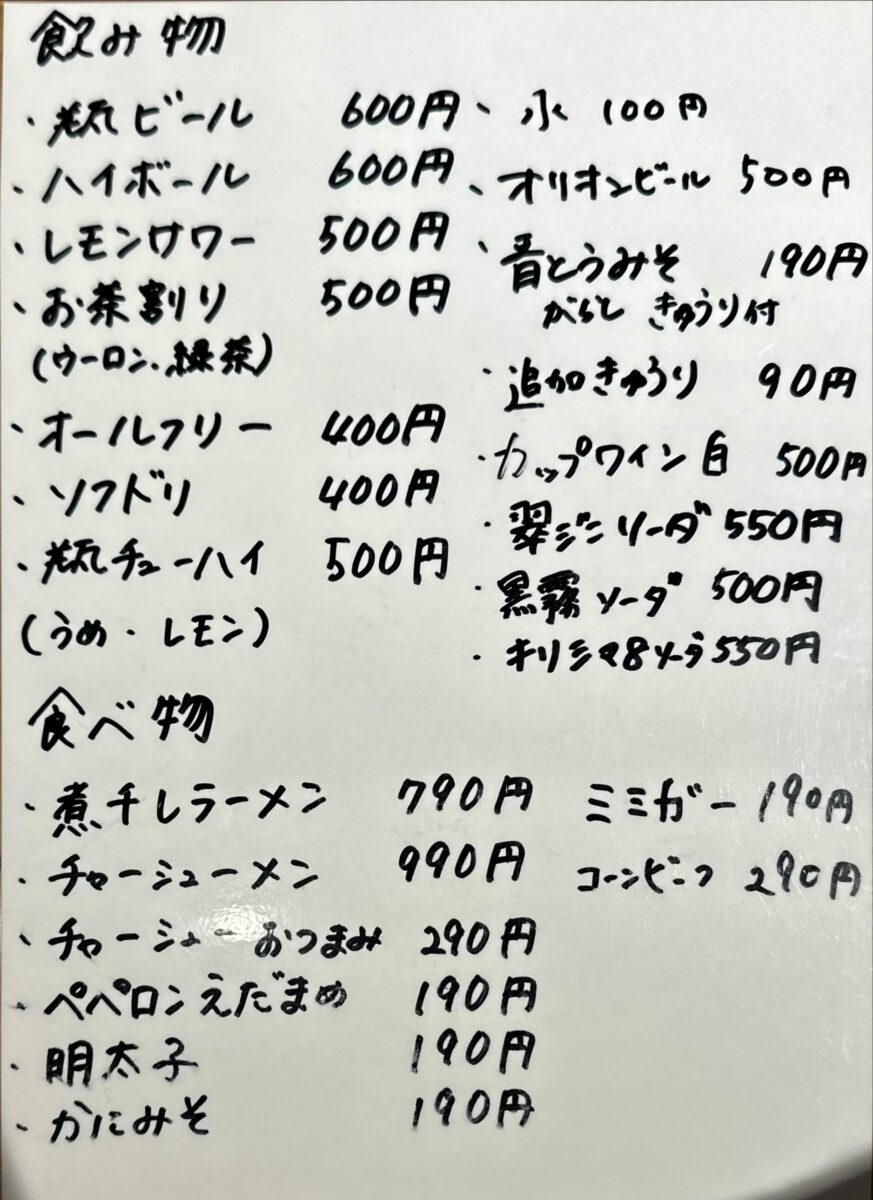 飲み物
・瓶ビール 600円
・ハイボール 600円
・レモンサワー 500円
・お茶割り 500円
(ウーロン、緑茶)
・オールフリー 400円
・ソフドリ 400円
・瓶チューハイ 500円
(うめ・レモン)
・水 100円
・オリオンビール 500円
・青とうみそ 190円
がらし きゅうり付
・追加きゅうり 90円
・カップワイン白 500円
・翠ジンソーダ 550円
・黒霧ソーダ 500円
・キリシマ8ソーダ 550円
食べ物
・煮干しラーメン 790円
・チャーシューメン 990円
・チャーシューおつまみ 290円
・ペペロンえだまめ 190円
・明太子 190円
・かにみそ 190円
ミミガー 190円
コーンビーフ 290円